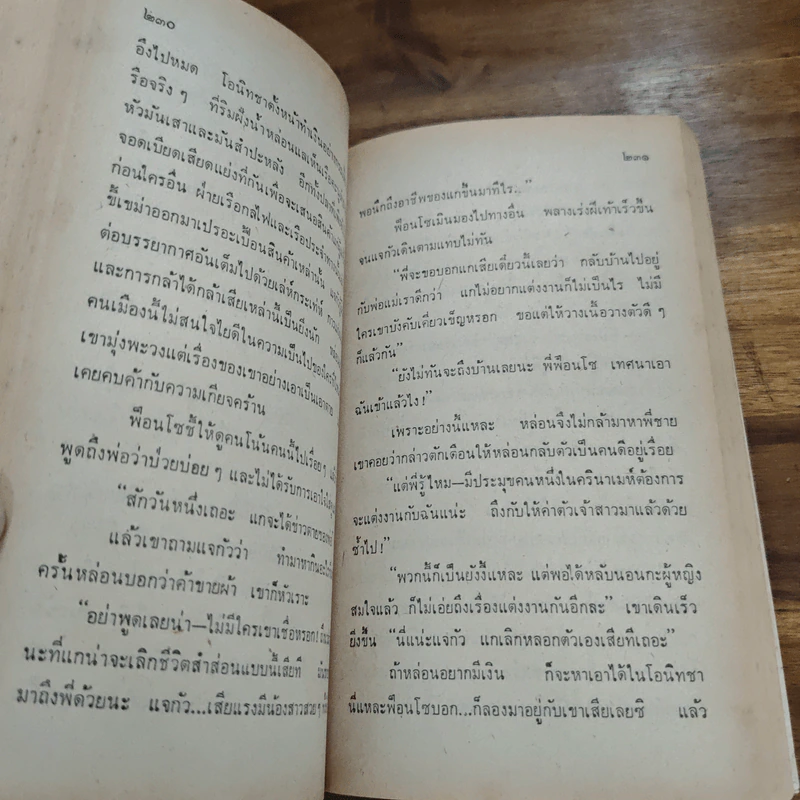 ๒๓๐
อึงไปหมด โอนิทชาตั้งหน้าทำเงินอย่าง
รือจริง ๆ ที่ริมฝั่งน้ำหล่อนแลเห็นเรือ
หัวมันเสาและมันสำปะหลัง อีกทั้ง
จอดเบียดเสียดแย่งที่กันเพื่อจะเสนอสินค้า
ก่อนใครอื่น ฝ่ายเรือกลไฟและเรือประจำ
ขี้เขม่าออกมาเปรอะเปื้อนสินค้าเหล่านั้น
ต่อบรรยากาศอันเต็มไปด้วยเล่ห์กระเท่ห์
และการกล้าได้กล้าเสียเหล่านี้เป็นยิ่งนัก
คนเมืองนี้ไม่สนใจไยดีในความเป็นไปของใคร
เขามุ่งพะวงแต่เรื่องของเขาอย่างเอาเป็นเอาตาย
เคยคบค้ากับความเกียจคร้าน
ฟ็อนโซชี้ให้ดูคนโน้นคนนี้ไปเรื่อย ๆ
พูดถึงพ่อว่าป่วยบ่อย ๆ และไม่ได้รับการเอาใจใส่
“สักวันหนึ่งเถอะ แกจะได้ข่าวตายของ
แล้วเขาถามแจกัวว่า ทำมาหากินอะไร
ครั้นหล่อนบอกว่าค้าขายผ้า เขาก็หัวเราะ
“อย่าพูดเลยน่า—ไม่มีใครเขาเชื่อหรอก!
นะที่แกน่าจะเลิกชีวิตสำส่อนแบบนี้เสียที
มาถึงพี่ด้วยนะ แจกัว...เสียแรงมีน้องสาวสวย ๆ
๒๓๑
พอนึกถึงอาชีพของแกขึ้นมาทีไร..”
ฟ็อนโซเมินมองไปทางอื่น พลางเร่งฝีเท้าเร็วขึ้น
จนแจกัวเดินตามแทบไม่ทัน
“พี่จะขอบอกแกเสียเดี๋ยวนี้เลยว่า กลับบ้านไปอยู่
กับพ่อแม่เราดีกว่า แกไม่อยากแต่งงานก็ไม่เป็นไร ไม่มี
ใครเขาบังคับเคี่ยวเข็ญหรอก ขอแต่ให้วางเนื้อวางตัวดี ๆ
ก็แล้วกัน”
“ยังไม่ทันจะถึงบ้านเลยนะ พี่ฟ็อนโซ เทศนาเอา
ฉันเข้าแล้วไง!”
เพราะอย่างนี้แหละ หล่อนจึงไม่กล้ามาหาพี่ชาย
เขาคอยว่ากล่าวตักเตือนให้หล่อนกลับตัวเป็นคนดีอยู่เรื่อย
“แต่พี่รู้ไหม—มีประมุขคนหนึ่งในครินาเมห์ต้องการ
จะแต่งงานกับฉันแน่ะ ถึงกับให้ค่าตัวเจ้าสาวมาแล้วด้วย
ซ้ำไป!”
“พวกนี้ก็เป็นยังงี้แหละ แต่พอได้หลับนอนกะผู้หญิง
สมใจแล้ว ก็ไม่เอ่ยถึงเรื่องแต่งงานกันอีกละ” เขาเดินเร็ว
ยิ่งขึ้น “นี่แน่ะแจกัว แกเลิกหลอกตัวเองเสียทีเถอะ”
ถ้าหล่อนอยากมีเงิน ก็จะหาเอาได้ในโอนิทชา
นี่แหละฟ็อนโซบอก...ก็ลองมาอยู่กับเขาเสียเลยซิ แล้ว